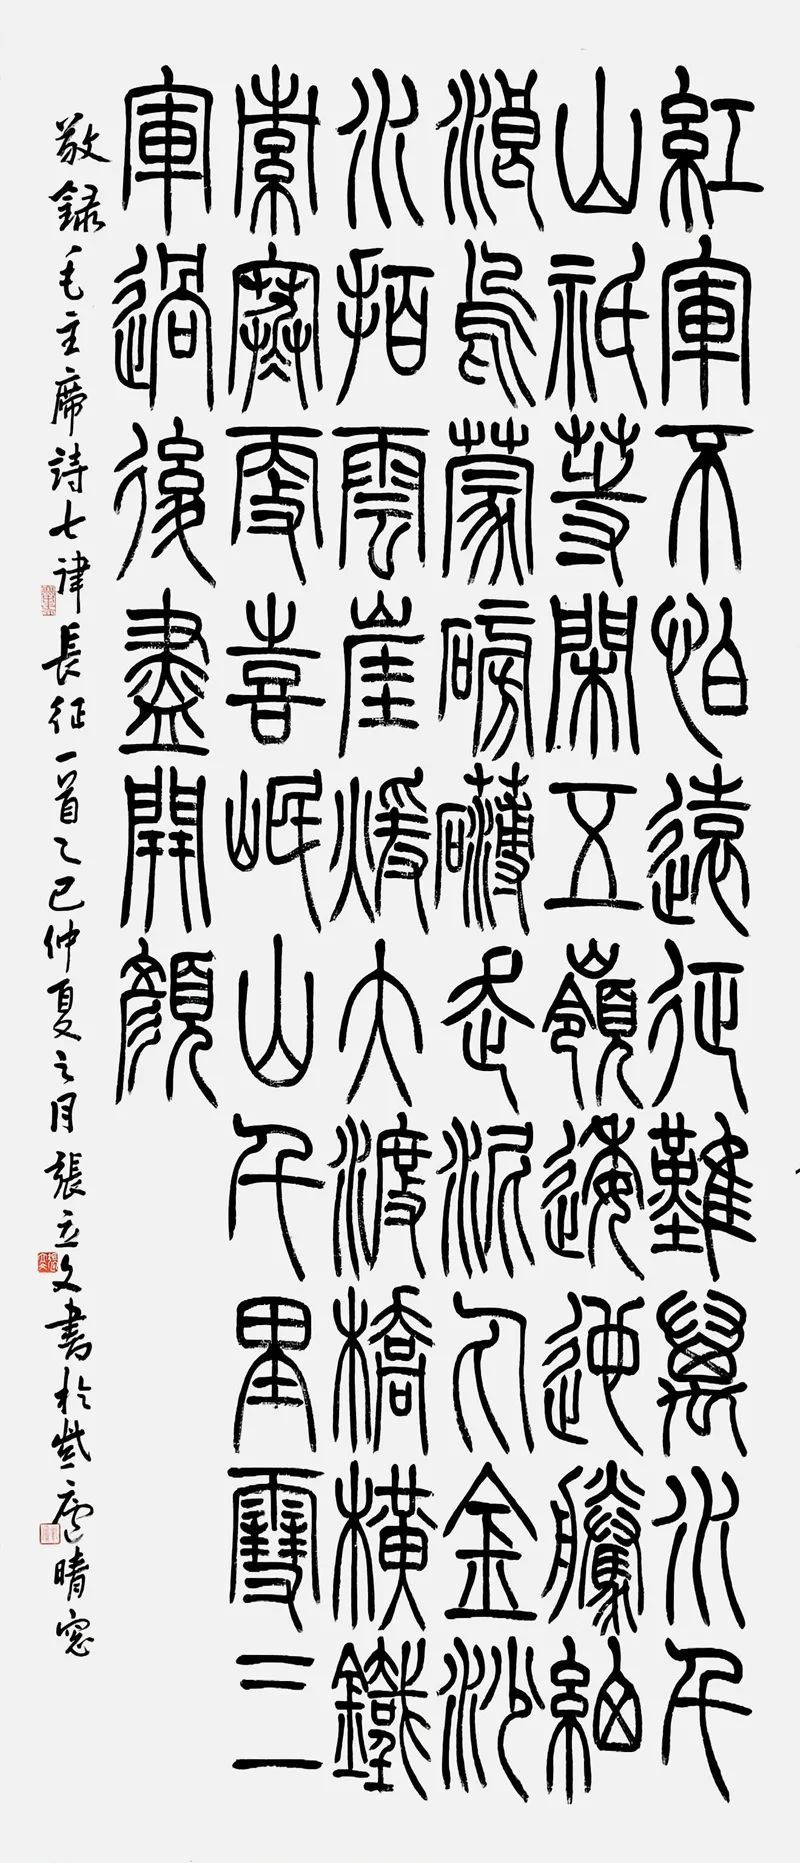 紅軍不怕遠征難萬水千
山祇等閑五嶺逶迤騰細
浪烏蒙磅礴走泥丸金沙
水拍雲崖暖大渡橋橫鐵
索寒更喜岷山千里雪三
軍過後盡開顏
敬録毛主席詩七律長征一首乙巳仲夏之月張立文書於紫廬晴窓